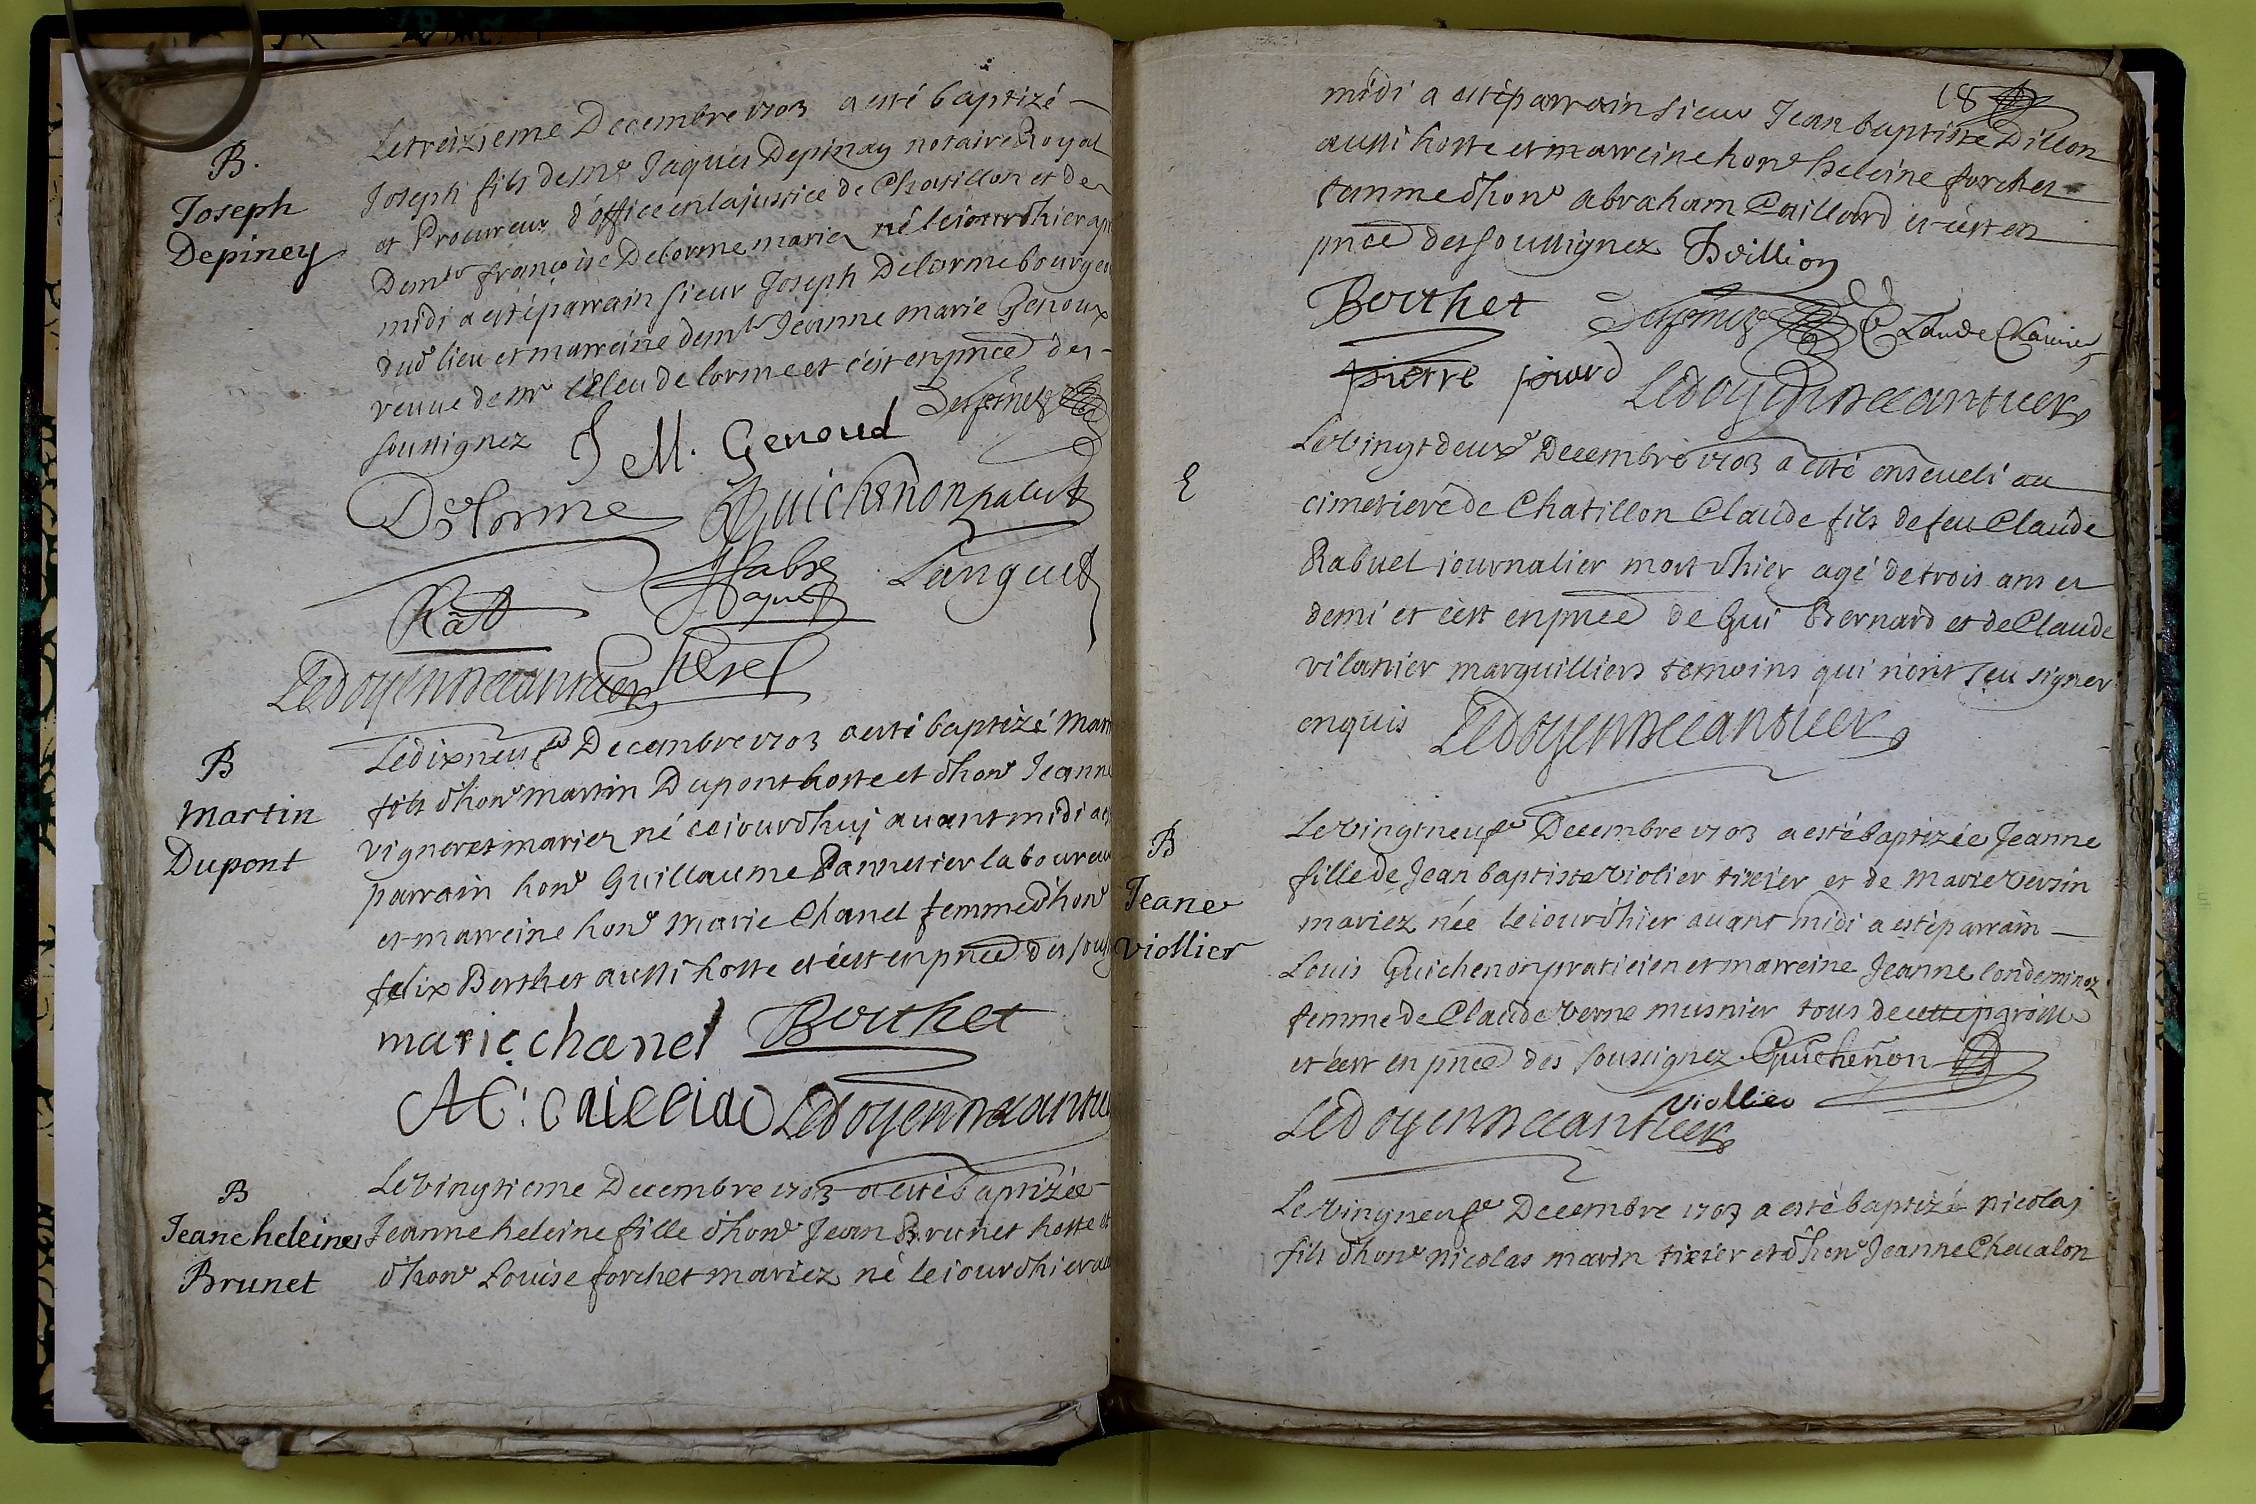 B.
Joseph
Depiney
Le treizieme Decembre 1703 a esté baptizé
Joseph fils de mr Jaques Depinay notaire Royal
et Procureur d'office en la justice de Chatillon et de
Demlle françoise Delorme mariez né le iourdhier apr
midi a esté parrain sieur Joseph Delorme bourgeoi
dud lieu et marreine demlle Jeanne marie Genoux
veuve de mr l'Eleu delorme et c'est en pnce des
soussignez J M. Genoud
Delorme Guichenon palut
Languet
Rat
Le doyen
B
Martin
Dupont
Le dixneufe Decembre 1703 a esté baptizé Mart
fils dhone martin Dupont hoste et dhone Jeanne
vigneret mariez né ce iourdhuj avant midi a es
parrain hone Guillaume Pannetier laboureur
et marreine hone Marie Chanel femme dhone
felix Berthet aussi hoste et c'est en pnce des sous
marie chanel Berthet
Le doyen
B
Jeane heleine
Brunet
Le vingtieme Decembre 1703 a esté baptizée
Jeanne heleine fille dhone Jean Brunet hoste et
dhone Louise forchet mariez né le iourdhier au
18
midi a esté parrain sieur Jean baptiste Dillon
aussi hoste et marreine hone heleine forchet
famme dhone abraham Caillard et c'est en
pnce des soussignez Dillion
Berthet Claude
pierre
Le doyen
E
Le vingt deuxe Decembre 1703 a esté enseveli au
cimetiere de Chatillon Claude fils de feu Claude
Rabuel iournalier mort dhier agé de trois ans et
demi et c'est en pnce de Gui Bernard et de Claude
vilanier marguilliers temoins qui n'ont sçu signer
enquis Le doyen
B
Jeane
viollier
Le vingtneufe Decembre 1703 a esté baptizée Jeanne
fille de Jean baptiste violier tixier et de Marie Versin
mariez née le iourdhier avant midi a esté parrain
Louis Guichenon praticien et marreine Jeanne Condeminoz
femme de Claude verne musnier tous de cette paroisse
et c'est en pnce des soussignez Guichenon
viollier
Le doyen
Le vingtneufe Decembre 1703 a esté baptizé nicolas
fils dhone nicolas marin tixier et dhone Jeanne Chevalon